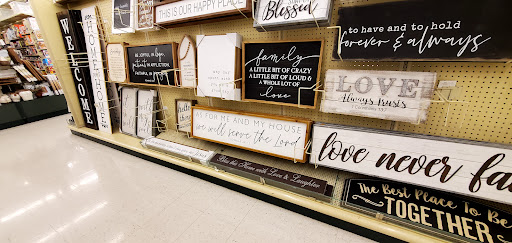 THIS IS OUR HAPPY PLACE
Blessed
to have and to hold
forever & always
WELCOME
family
A LITTLE BIT OF CRAZY
A LITTLE BIT OF LOUD &
A WHOLE LOT OF
love
LOVE
Always Trusts
AS FOR ME AND MY HOUSE
we will serve the Lord
love never fa
with Love & Laughter
The Best Place To Be
TOGETHER